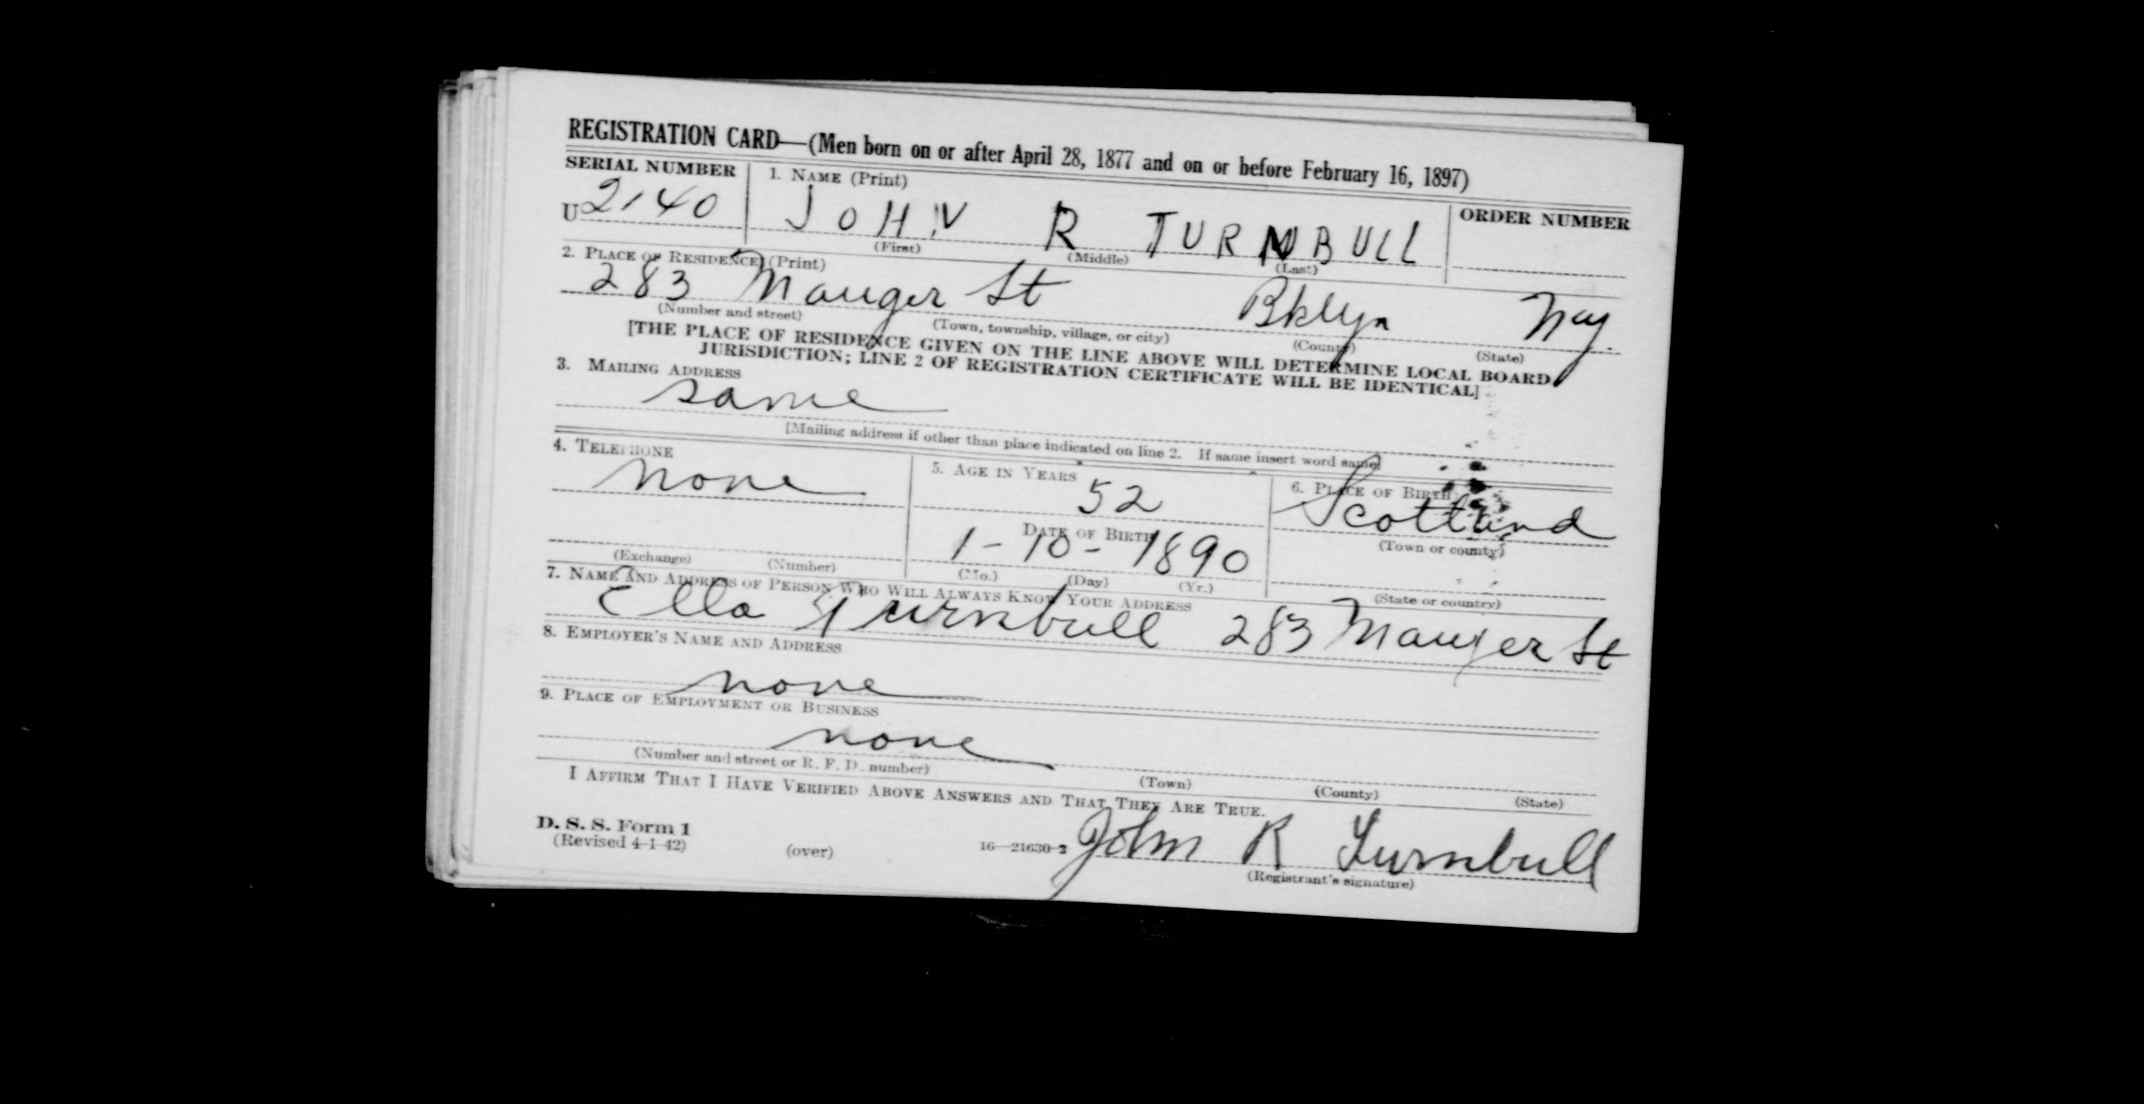 REGISTRATION CARD—(Men born on or after April 28, 1877 and on or before February 16, 1897)
SERIAL NUMBER
1. NAME (Print)
ORDER NUMBER
U 2140
JOHN R TURNBULL
(First) (Middle) (Last)
2. PLACE OF RESIDENCE (Print)
283 Mauger St Bklyn NY.
(Number and street) (Town, township, village, or city) (County) (State)
[THE PLACE OF RESIDENCE GIVEN ON THE LINE ABOVE WILL DETERMINE LOCAL BOARD
JURISDICTION; LINE 2 OF REGISTRATION CERTIFICATE WILL BE IDENTICAL]
3. MAILING ADDRESS
same
[Mailing address if other than place indicated on line 2. If same insert word same]
4. TELEPHONE
none
(Exchange) (Number)
5. AGE IN YEARS
52
DATE OF BIRTH
1-10-1890
(Mo.) (Day) (Yr.)
6. PLACE OF BIRTH
Scotland
(Town or county)
(State or country)
7. NAME AND ADDRESS OF PERSON WHO WILL ALWAYS KNOW YOUR ADDRESS
Ella Turnbull 283 Mauger St
8. EMPLOYER'S NAME AND ADDRESS
none
9. PLACE OF EMPLOYMENT OR BUSINESS
none
(Number and street or R. F. D. number) (Town) (County) (State)
I AFFIRM THAT I HAVE VERIFIED ABOVE ANSWERS AND THAT THEY ARE TRUE.
D. S. S. Form 1
(Revised 4-1-42) (over) 16—21630-2
John R Turnbull
(Registrant's signature)